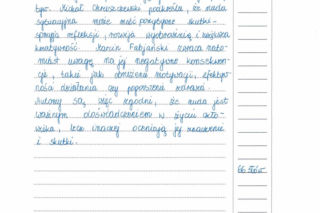 tyw. Michał Chruszczewski podkreśla, że nuda
sytuacyjna może mieć pozytywne skutki -
sprzyja refleksji, rozwija wyobraźnię i zwiększa
kreatywność. Marcin Fabjański zwraca nato-
miast uwagę na jej negatywne konsekwen-
cje, takie jak obniżenie motywacji, efektyw-
ności działania czy pogorszenie zdrowia.
Autorzy są więc zgodni, że nuda jest
ważnym doświadczeniem w życiu czło-
wieka, lecz inaczej oceniają jej znaczenie
i skutki.
66 słów